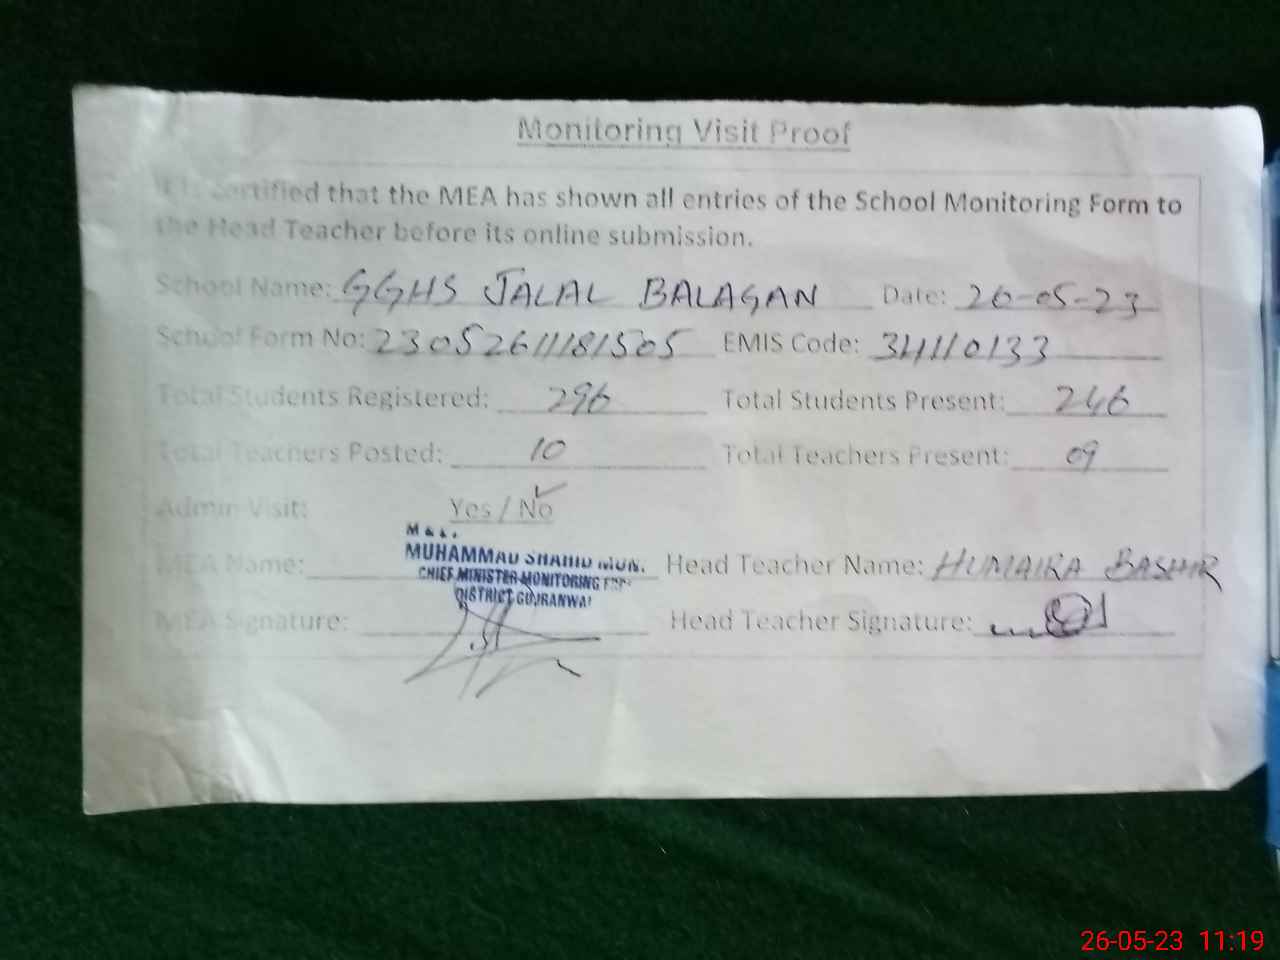 Monitoring Visit Proof
It is certified that the MEA has shown all entries of the School Monitoring Form to
the Head Teacher before its online submission.
School Name: GGHS JALAL BALAGAN Date: 26-05-23
School Form No: 23052611181505 EMIS Code: 34110133
Total Students Registered: 296 Total Students Present: 246
Total Teachers Posted: 10 Total Teachers Present: 09
Admin Visit: Yes / No
MUHAMMAD SHAHID
MEA Name: Head Teacher Name: HUMAIRA BASHIR
CHIEF MINISTER MONITORING
DISTRICT GUJRANWA
MEA Signature: Head Teacher Signature:
26-05-23 11:19